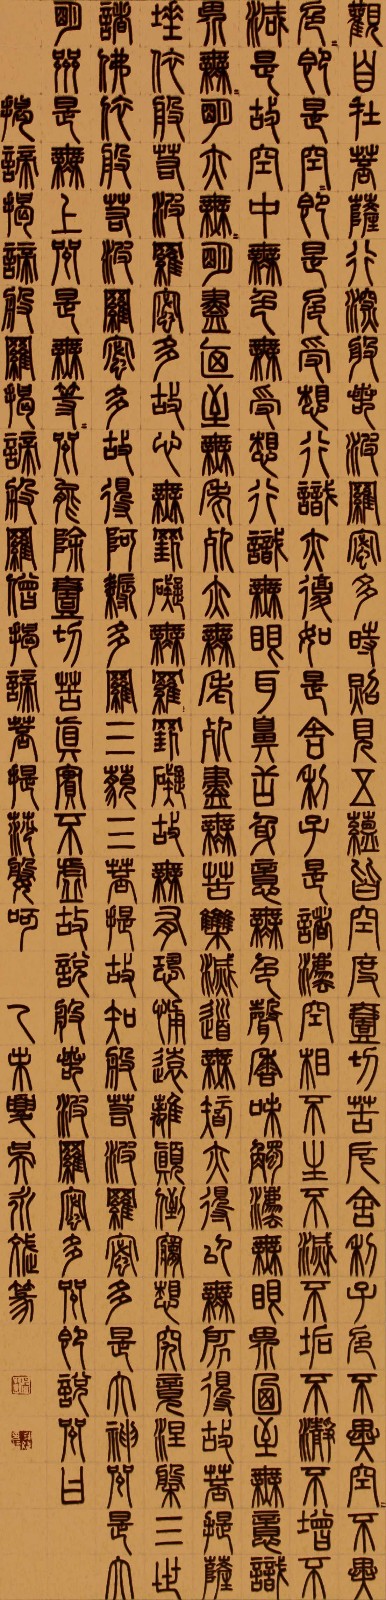 觀自在菩薩行深般若波羅蜜多時照見五蘊皆空度壹切苦厄舍利子色不異空〻不異
色〻即是空〻即是色受想行識亦復如是舍利子是諸灋空相不生不滅不垢不瀞不增不
減是故空中無色無受想行識無眼耳鼻舌身意無色聲香味觸灋無眼界迺至無意識
界無〻明亦無〻明盡迺至無老死亦無老死盡無苦集滅道無智亦得以無所得故菩提薩
埵依般若波羅蜜多故心無罣礙無羅罣礙故無有恐怖遠離顛倒夢想究竟涅槃三世
諸佛依般若波羅蜜多故得阿耨多羅三藐三菩提故知般若波羅蜜多是大神咒是大
明咒是無上咒是無等〻咒能除壹切苦真實不虛故說般若波羅蜜多咒即說咒曰
揭諦揭諦般羅揭諦般羅僧揭諦菩提莎婆呵 乙未夏吳永篆